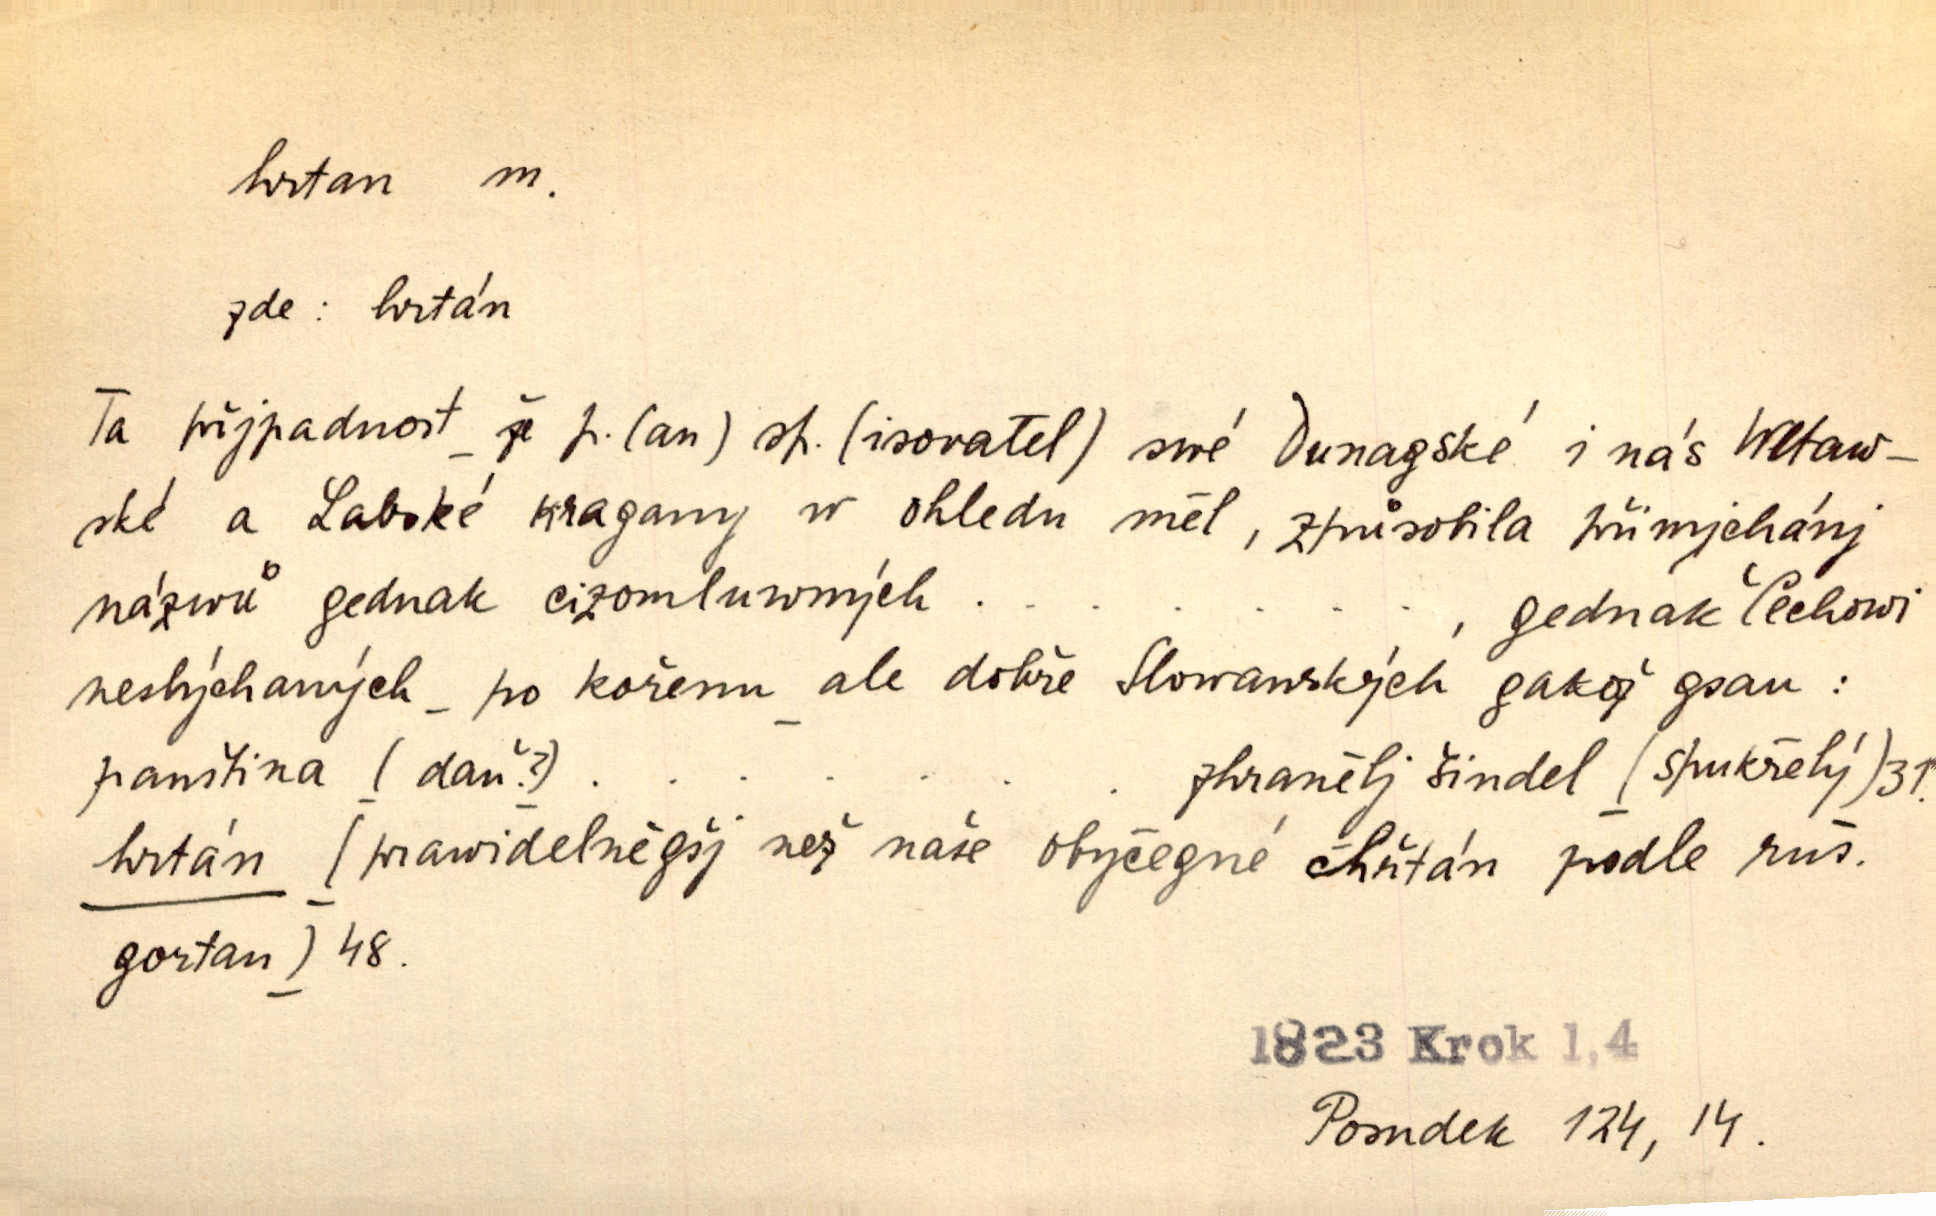 hrtan m.
zde : hrtán
Ta přjpadnost _ že p. (an) sp. (isovatel) swé Dunagské i nás Wltaw-
ské a Labské kragany w ohledu měl, způsobila přimjchánj
názwů gednak cizomluwných . . . . . . . , gednak Čechowi
neslýchaných _ po kořenu _ ale dobře Slowanských gakož gsau :
panština ( daň ?) . . . . . . . zhranělj šindel ( spukřelý ) 31.
hrtán ( prawidelněgšj než naše obyčegné chřtán podle rus.
gortan ) 48.
1823 Krok 1,4
Posudek 124, 14.